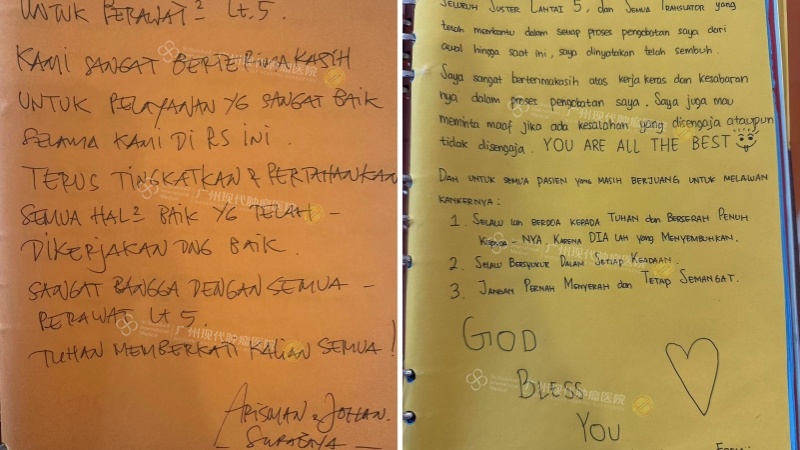 UNTUK PERAWAT² Lt. 5.
KAMI SANGAT BERTERIMAKASIH
UNTUK PELAYANAN YG SANGAT BAIK
SELAMA KAMI DI RS INI.
TERUS TINGKATKAN & PERTAHANKAN
SEMUA HAL² BAIK YG TELAH -
DIKERJAKAN DNG BAIK.
SANGAT BANGGA DENGAN SEMUA -
PERAWAT Lt 5.
TUHAN MEMBERKATI KALIAN SEMUA!
ARISMAN & JOHAN.
- SURABAYA -
SELURUH SUSTER LANTAI 5, dan SEMUA TRANSLATOR yang
telah membantu dalam setiap proses pengobatan saya dari
awal hingga saat ini, saya dinyatakan telah sembuh.
Saya sangat berterimakasih atas kerja keras dan kesabaran
nya dalam proses pengobatan saya. Saya juga mau
meminta maaf jika ada kesalahan yang disengaja ataupun
tidak disengaja. YOU ARE ALL THE BEST
DAN UNTUK SEMUA PASIEN yang MASIH BERJUANG UNTUK MELAWAN
KANKERNYA:
1. SELALU lah BERDOA KEPADA TUHAN dan BERSERAH PENUH
KEPADA-NYA, KARENA DIA LAH yang MENYEMBUHKAN.
2. SELALU BERSYUKUR DALAM SETIAP KEADAAN.
3. JANGAN PERNAH MENYERAH dan TETAP SEMANGAT.
GOD
BLESS
YOU
广州现代肿瘤医院
广州现代肿瘤医院
广州现代肿瘤医院
广州现代肿瘤医院
广州现代肿瘤医院
广州现代肿瘤医院